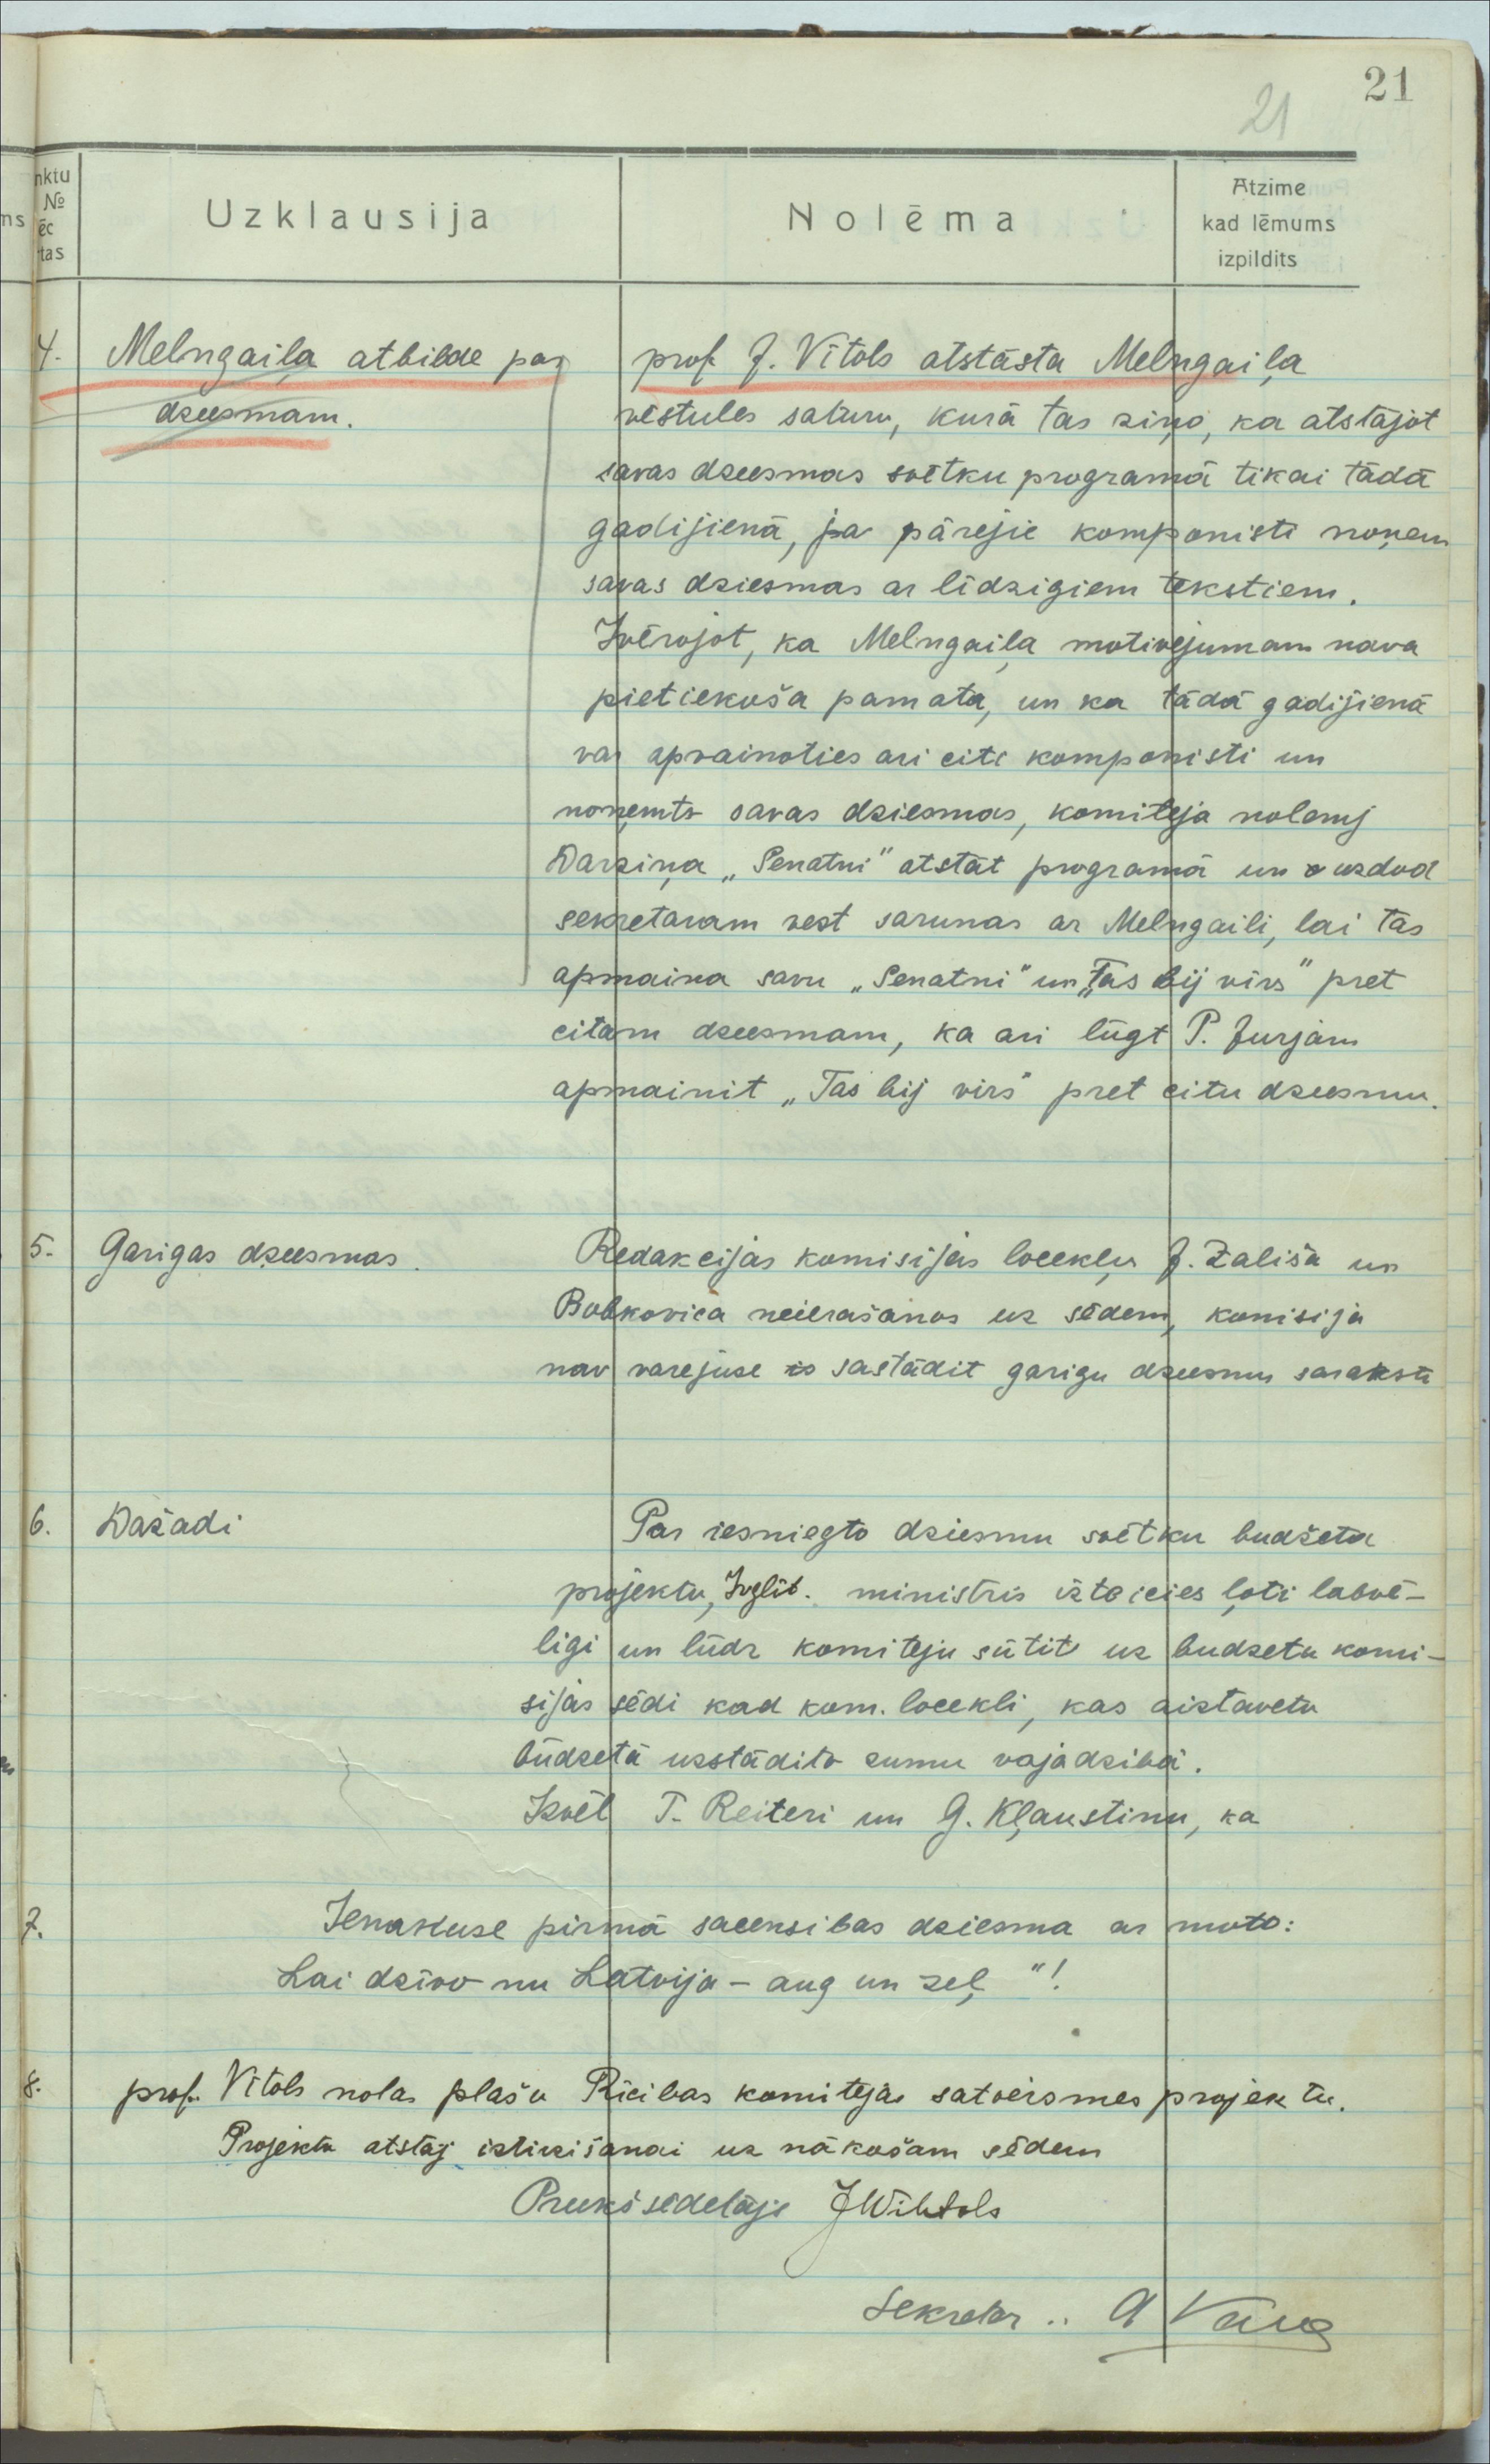 21
21
nktu
№
ēc
tas
ms
Uzklausija
Nolēma
Atzime
kad lēmums
izpildits
4. Melngaiļa atbilde par
dzeesmam.
prof. J. Vītols atstāsta Melngaiļa
vēstules saturu, kurā tas ziņo, ka atstājot
savas dzeesmas svētku programā tikai tādā
gadijienā, ja pārejie komponisti noņem
savas dziesmas ar līdzigiem tekstiem.
Ivērojot, ka Melngaiļa motivejumam nava
pietiekoša pamata, un ka tādā gadijienā
var apvainoties ari citi komponisti un
noņemts savas dziesmas, komiteja nolemj
Darziņa „Senatni" atstāt programā un uzdod
sekretaram vest sarunas ar Melngaili, lai tas
apmaina savu „Senatni" un „Tas bij virs" pret
citam dzeesmam, ka ari lūgt P. Jurjam
apmainit „Tas bij virs" pret citu dzeesmu.
5. Garigas dzeesmas.
Redakcijas komisijas loceekļu J. Zališa un
Bobkovica neierašanos uz sēdem, komisija
nav varejuse sastādit garigu dzeesmu sarakstu
6. Dažadi
Par iesniegto dziesmu svētku budžeta
projektu, Izglīt. ministris izteicies ļoti labvē-
ligi un lūdz komiteju sūtit uz budzeta komi-
sijas sēdi kad kom. loceekli, kas aiztavetu
būdzetā uzstādito sumu vajadzibā.
Izvēl T. Reiteri un G. Kļaustinu, ka
7. Ienakuse pirmā sacensibas dziesma ar moto:
Lai dzīvo nu Latvija – aug un zeļ "!
8. prof. Vītols nolas plašu Rīcibas komitejas satversmes projektu.
Projektu atstāj iztirzišanai uz nākošam sēdem
Preekšsēdetājs JWihtols
Sekretar ..